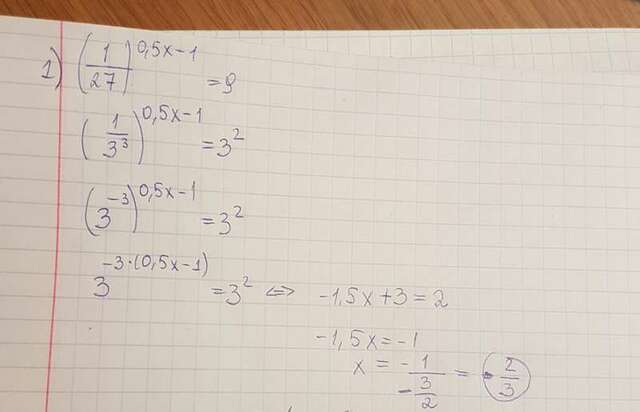 1) (1/27)^(0,5x-1) = 9
(1/3^3)^(0,5x-1) = 3^2
(3^-3)^(0,5x-1) = 3^2
3^(-3·(0,5x-1)) = 3^2 ⇔ -1,5x+3=2
-1,5x=-1
x = -1/(-3/2) = -2/3